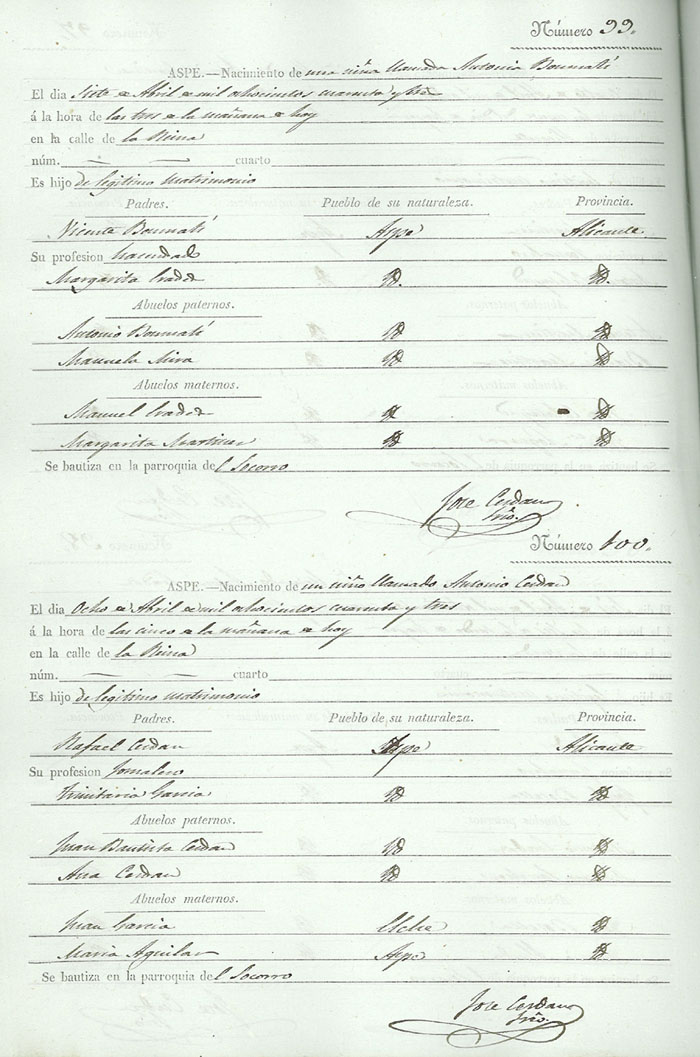 Número 99.
ASPE.—Nacimiento de una niña llamada Antonia Boumatí
El dia Siete de Abril de mil ochocientos cuarenta y tres
á la hora de las tres de la mañana de hoy
en la calle de la Reina
núm. — — cuarto
Es hijo de legitimo matrimonio
Padres. Pueblo de su naturaleza. Provincia.
Vicente Boumatí Aspe Alicante
Su profesion hacendado
Margarita id. id.
Abuelos paternos.
Antonio Boumatí id id
Manuela Mira id id
Abuelos maternos.
Manuel id id
Margarita Martinez id id
Se bautiza en la parroquia del Socorro
Jose Cerdan
Srio.
Número 100.
ASPE.—Nacimiento de un niño llamado Antonio Cerdan
El dia Ocho de Abril de mil ochocientos cuarenta y tres
á la hora de las cinco de la mañana de hoy
en la calle de la Reina
núm. — — cuarto
Es hijo de legitimo matrimonio
Padres. Pueblo de su naturaleza. Provincia.
Rafael Cerdan Aspe Alicante
Su profesion Jornalero
Trinitaria Garcia id id
Abuelos paternos.
Juan Bautista Cerdan id id
Ana Cerdan id id
Abuelos maternos.
Juan Garcia Elche id
Maria Aguilar Aspe id
Se bautiza en la parroquia del Socorro
Jose Cerdan
Srio.